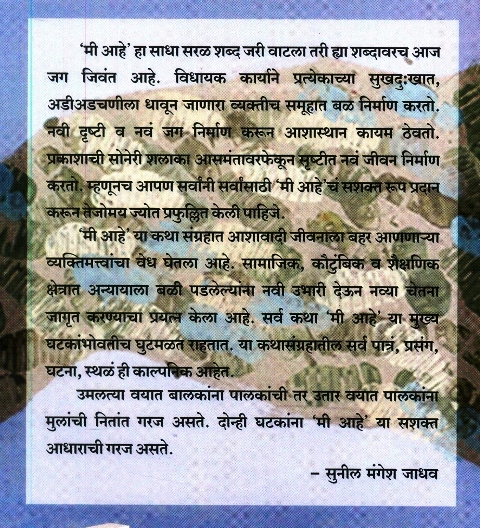 ‘मी आहे’ हा साधा सरळ शब्द जरी वाटला तरी ह्या शब्दावरच आज
जग जिवंत आहे. विधायक कार्याने प्रत्येकाच्या सुखदुःखात,
अडीअडचणीला धावून जाणारा व्यक्तीच समूहात बळ निर्माण करतो.
नवी दृष्टी व नवं जग निर्माण करून आशास्थान कायम ठेवतो.
प्रकाशाची सोनेरी शलाका आसमंतावरफेकून सृष्टीत नवं जीवन निर्माण
करतो. म्हणूनच आपण सर्वांनी सर्वांसाठी ‘मी आहे’चं सशक्त रूप प्रदान
करून तेजोमय ज्योत प्रफुल्लित केली पाहिजे.
‘मी आहे’ या कथा संग्रहात आशावादी जीवनाला बहर आणणाऱ्या
व्यक्तिमत्त्वांचा वेध घेतला आहे. सामाजिक, कौटुंबिक व शैक्षणिक
क्षेत्रात अन्यायाला बळी पडलेल्यांना नवी उभारी देऊन नव्या चेतना
जागृत करण्याचा प्रयत्न केला आहे. सर्व कथा ‘मी आहे’ या मुख्य
घटकांभोवतीच घुटमळत राहतात. या कथासंग्रहातील सर्व पात्रं, प्रसंग,
घटना, स्थळं ही काल्पनिक आहेत.
उमलत्या वयात बालकांना पालकांची तर उतार वयात पालकांना
मुलांची नितांत गरज असते. दोन्ही घटकांना ‘मी आहे’ या सशक्त
आधाराची गरज असते.
– सुनील मंगेश जाधव